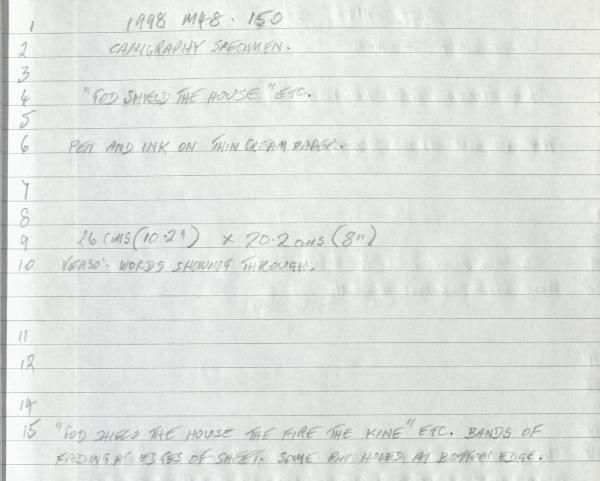 1 1998 M48. 150
2 CALLIGRAPHY SPECIMEN.
3
4 "GOD SHIELD THE HOUSE" ETC.
5
6 PEN AND INK ON THIN CREAM PAPER.
7
8
9 26 CMS (10.2") x 20.2 CMS (8")
10 VERSO: WORDS SHOWING THROUGH.
11
12
14
15 "GOD SHIELD THE HOUSE THE FIRE THE KINE" ETC. BANDS OF
FADING AT EDGES OF SHEET. SOME PIN HOLES AT BOTTOM EDGE.